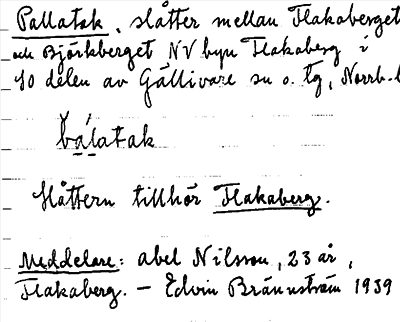 Pallatak, slåtter mellan Flakaberget
och Björkberget NV byn Flakaberg i
SO delen av Gällivare sn o. tg, Norrb. l
bálatak
Slåttern tillhör Flakaberg.
Meddelare: Abel Nilsson, 23 år,
Flakaberg. – Edvin Brännström 1939